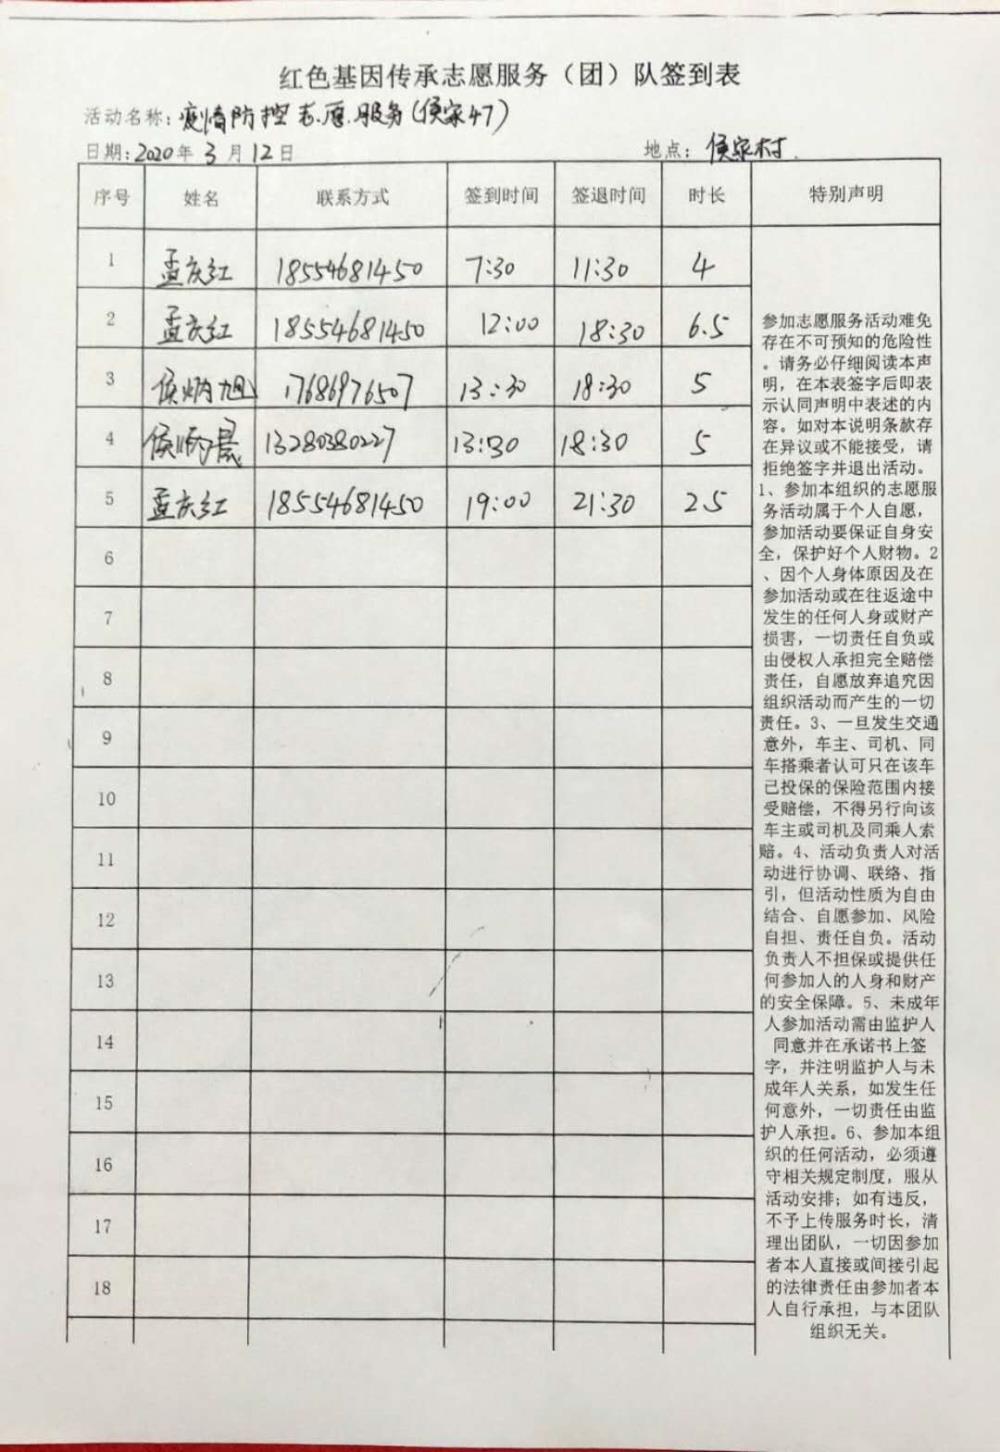 红色基因传承志愿服务（团）队签到表
活动名称：疫情防控志愿服务(侯家47)
日期：2020年3月12日 地点：侯家村.
序号 姓名 联系方式 签到时间 签退时间 时长 特别声明
1 孟庆红 18554681450 7:30 11:30 4
2 孟庆红 18554681450 12:00 18:30 6.5
3 侯炳旭 17686976507 13:30 18:30 5
4 侯炳晨 13280380227 13:30 18:30 5
5 孟庆红 18554681450 19:00 21:30 2.5
6
7
8
9
10
11
12
13
14
15
16
17
18
参加志愿服务活动难免
存在不可预知的危险性
。请务必仔细阅读本声
明，在本表签字后即表
示认同声明中表述的内
容。如对本说明条款存
在异议或不能接受，请
拒绝签字并退出活动。
1、参加本组织的志愿服
务活动属于个人自愿，
参加活动要保证自身安
全，保护好个人财物。2
、因个人身体原因及在
参加活动或在往返途中
发生的任何人身或财产
损害，一切责任自负或
由侵权人承担完全赔偿
责任，自愿放弃追究因
组织活动而产生的一切
责任。3、一旦发生交通
意外，车主、司机、同
车搭乘者认可只在该车
已投保的保险范围内接
受赔偿，不得另行向该
车主或司机及同乘人索
赔。4、活动负责人对活
动进行协调、联络、指
引，但活动性质为自由
结合、自愿参加、风险
自担、责任自负。活动
负责人不担保或提供任
何参加人的人身和财产
的安全保障。5、未成年
人参加活动需由监护人
同意并在承诺书上签
字，并注明监护人与未
成年人关系，如发生任
何意外，一切责任由监
护人承担。6、参加本组
织的任何活动，必须遵
守相关规定制度，服从
活动安排；如有违反，
不予上传服务时长，清
理出团队，一切因参加
者本人直接或间接引起
的法律责任由参加者本
人自行承担，与本团队
组织无关。